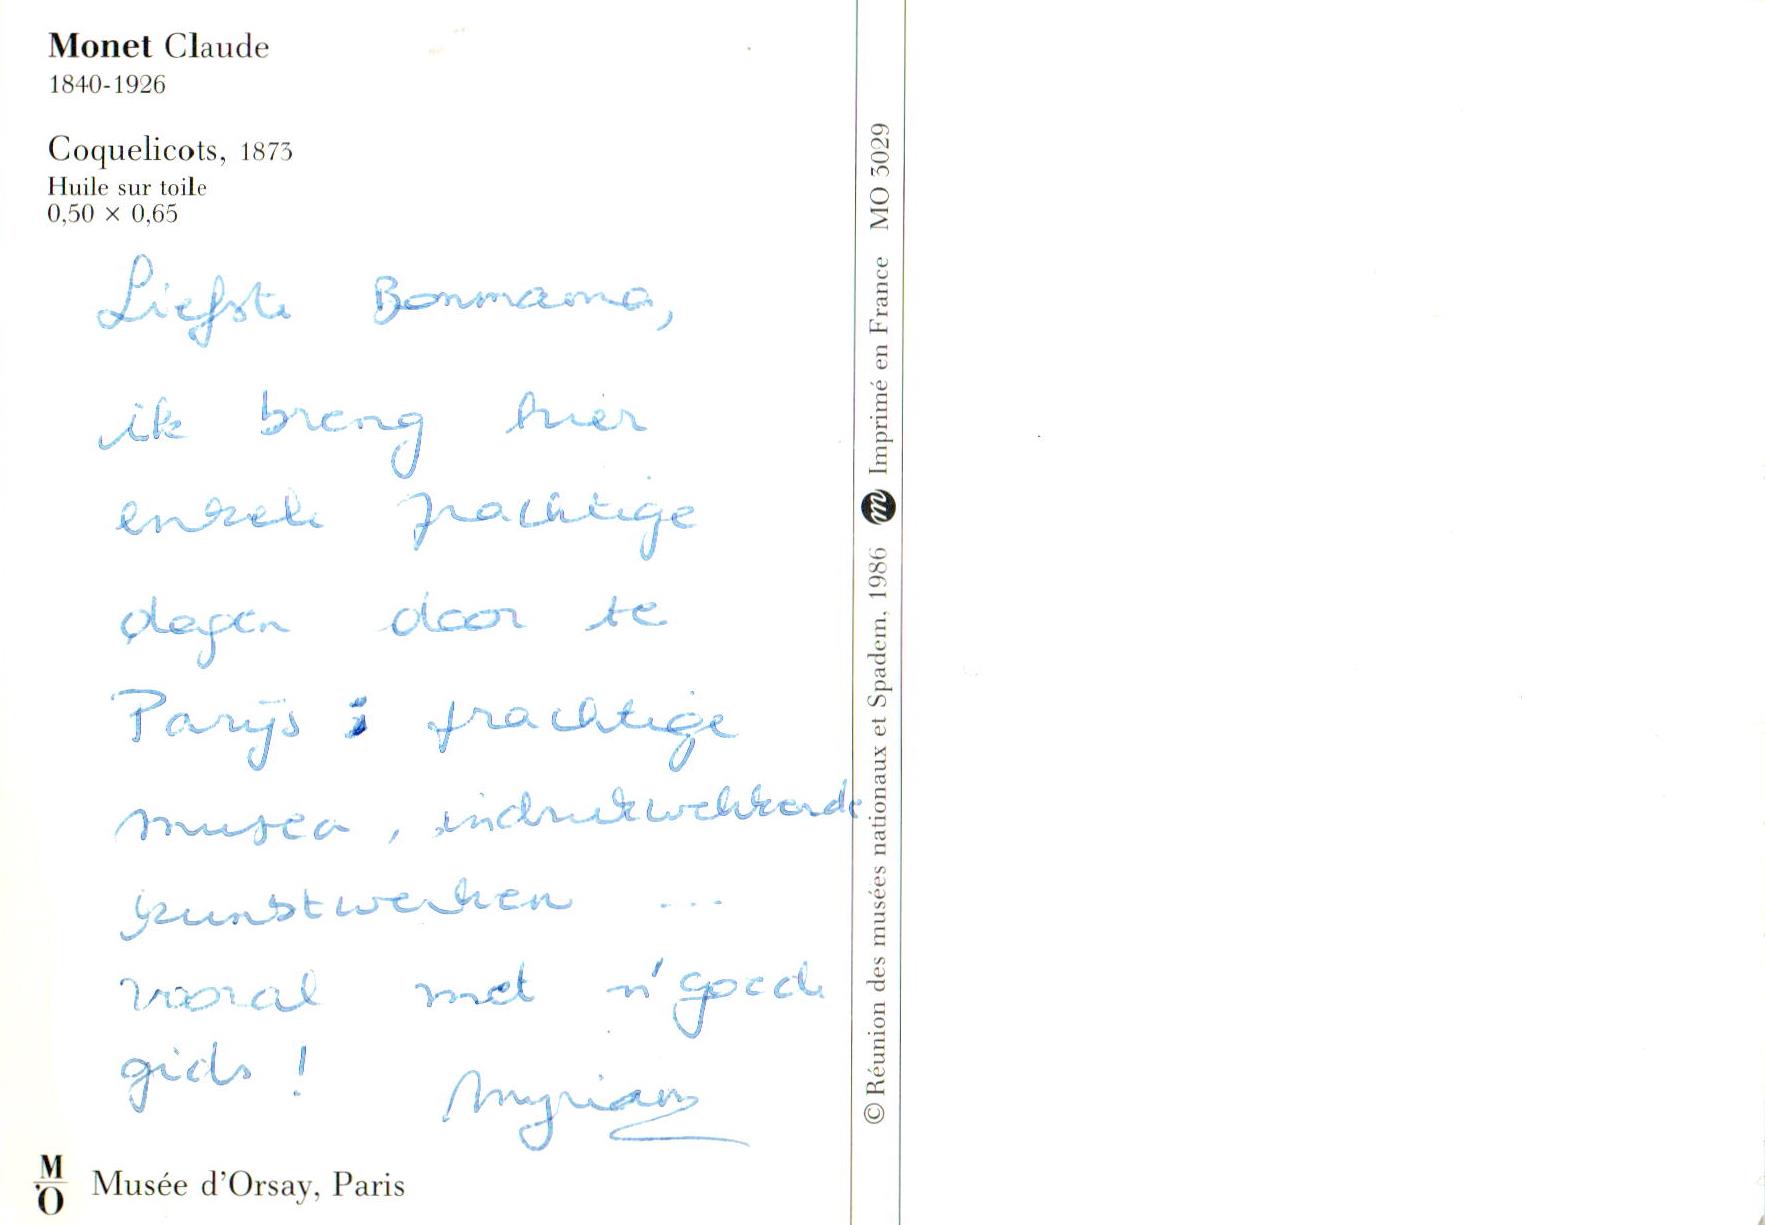 Monet Claude
1840-1926
Coquelicots, 1873
Huile sur toile
0,50 × 0,65
Liefste Bonmama,
ik breng hier
enkele prachtige
dagen door te
Parijs : prachtige
musea, indrukwekkende
kunstwerken ...
vooral met n' goede
gids !
Myriam
M
'O
Musée d'Orsay, Paris
© Réunion des musées nationaux et Spadem, 1986 m Imprimé en France MO 3029